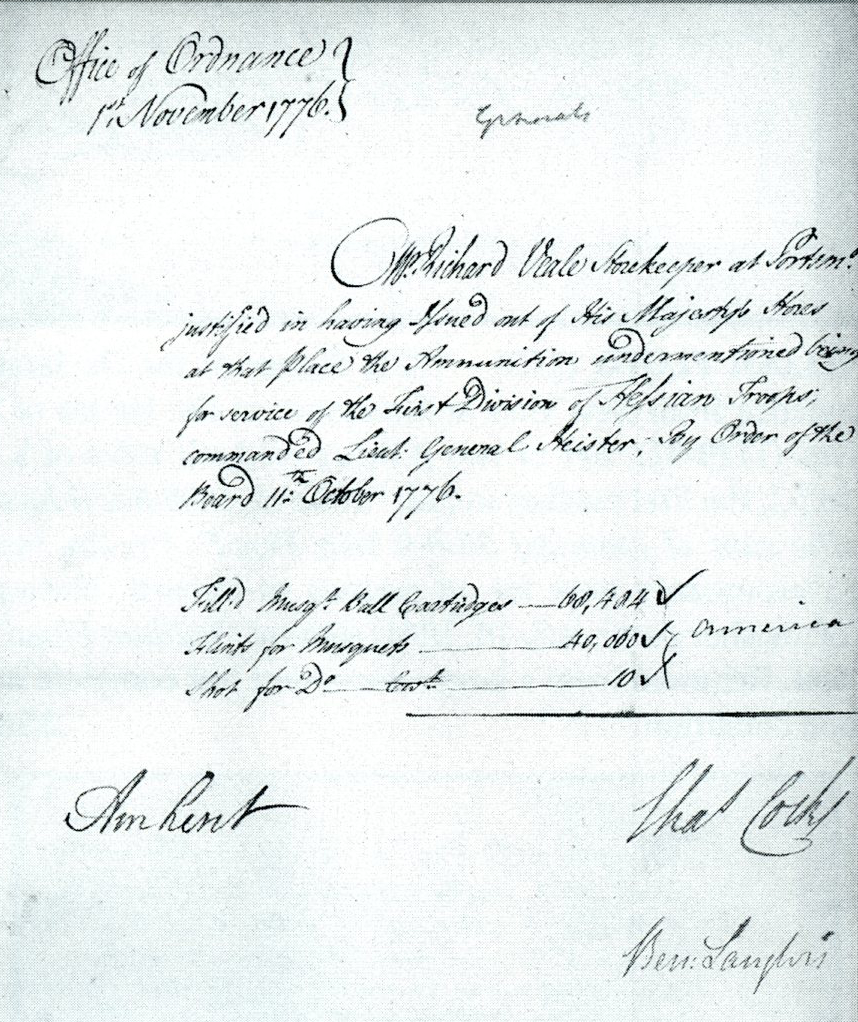 Office of Ordnance
1st November 1776.
Mr. Richard Veale Storekeeper at Portsmo.
justified in having Issued out of His Majestys Stores
at that Place the Ammunition undermentioned being
for service of the First Division of Hessian Troops;
commanded Lieut. General Heister; By Order of the
Board 11th October 1776.
Fill'd Musqt. Ball Cartridges 60,404
Flints for Musquets 40,000 America
Shot for Do 10
Amherst
Chas Cocks
Ben: Langlois